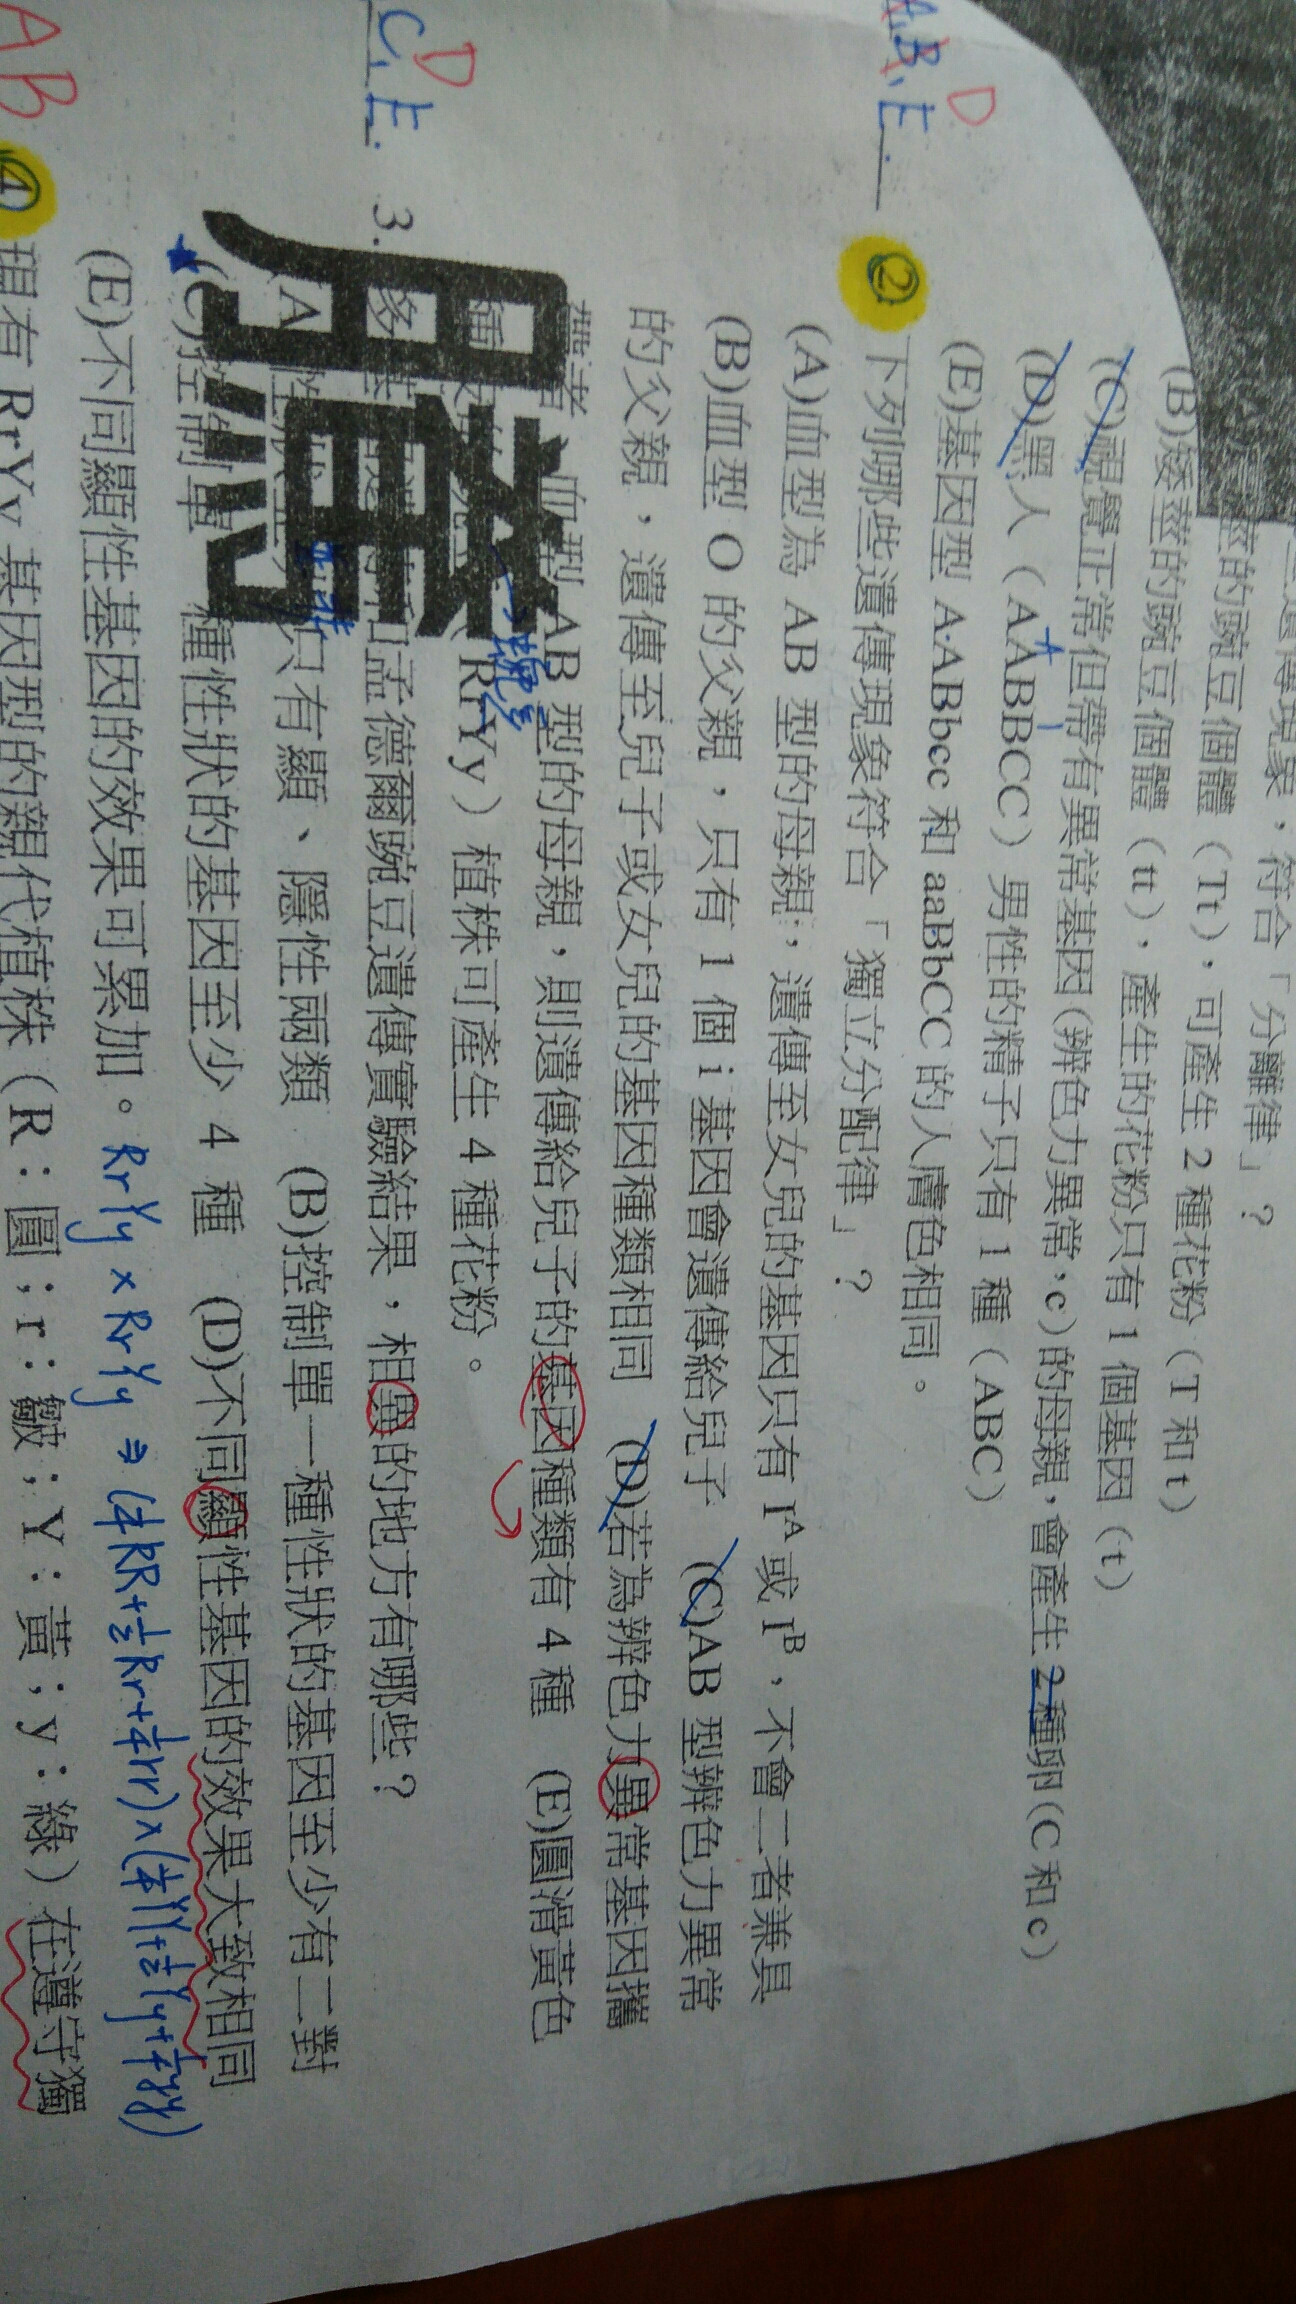 莖的豌豆個體（Tt），可產生 2 種花粉（T 和 t）
(B)矮莖的豌豆個體（tt），產生的花粉只有 1 個基因（t）
(C)視覺正常但帶有異常基因(辨色力異常，c)的母親，會產生 2 種卵(C 和 c)
(D)黑人（AABBCC）男性的精子只有 1 種（ABC）
(E)基因型 AABbcc 和 aaBbCC 的人膚色相同。
D
A,B,E
② 下列哪些遺傳現象符合「獨立分配律」？
(A)血型為 AB 型的母親，遺傳至女兒的基因只有 Iᴬ 或 Iᴮ，不會二者兼具
(B)血型 O 的父親，只有 1 個 i 基因會遺傳給兒子　(C)AB 型辨色力異常
的父親，遺傳至兒子或女兒的基因種類相同　(D)若為辨色力異常基因攜
帶者、血型 AB 型的母親，則遺傳給兒子的基因種類有 4 種　(E)圓滑黃色
RrYy）植株可產生 4 種花粉。
D
C,E.
3. 多基 和孟德爾豌豆遺傳實驗結果，相異的地方有哪些？
(A 性狀 只有顯、隱性兩類　(B)控制單一種性狀的基因至少有二對
★(C)控制單 種性狀的基因至少 4 種　(D)不同顯性基因的效果大致相同
(E)不同顯性基因的效果可累加。
RrYy × RrYy ⇒ (¼RR+½Rr+¼rr)×(¼YY+½Yy+¼yy)
AB
④ 現有 RrYy 基因型的親代植株（R：圓；r：皺；Y：黃；y：綠）在遵守獨
膳